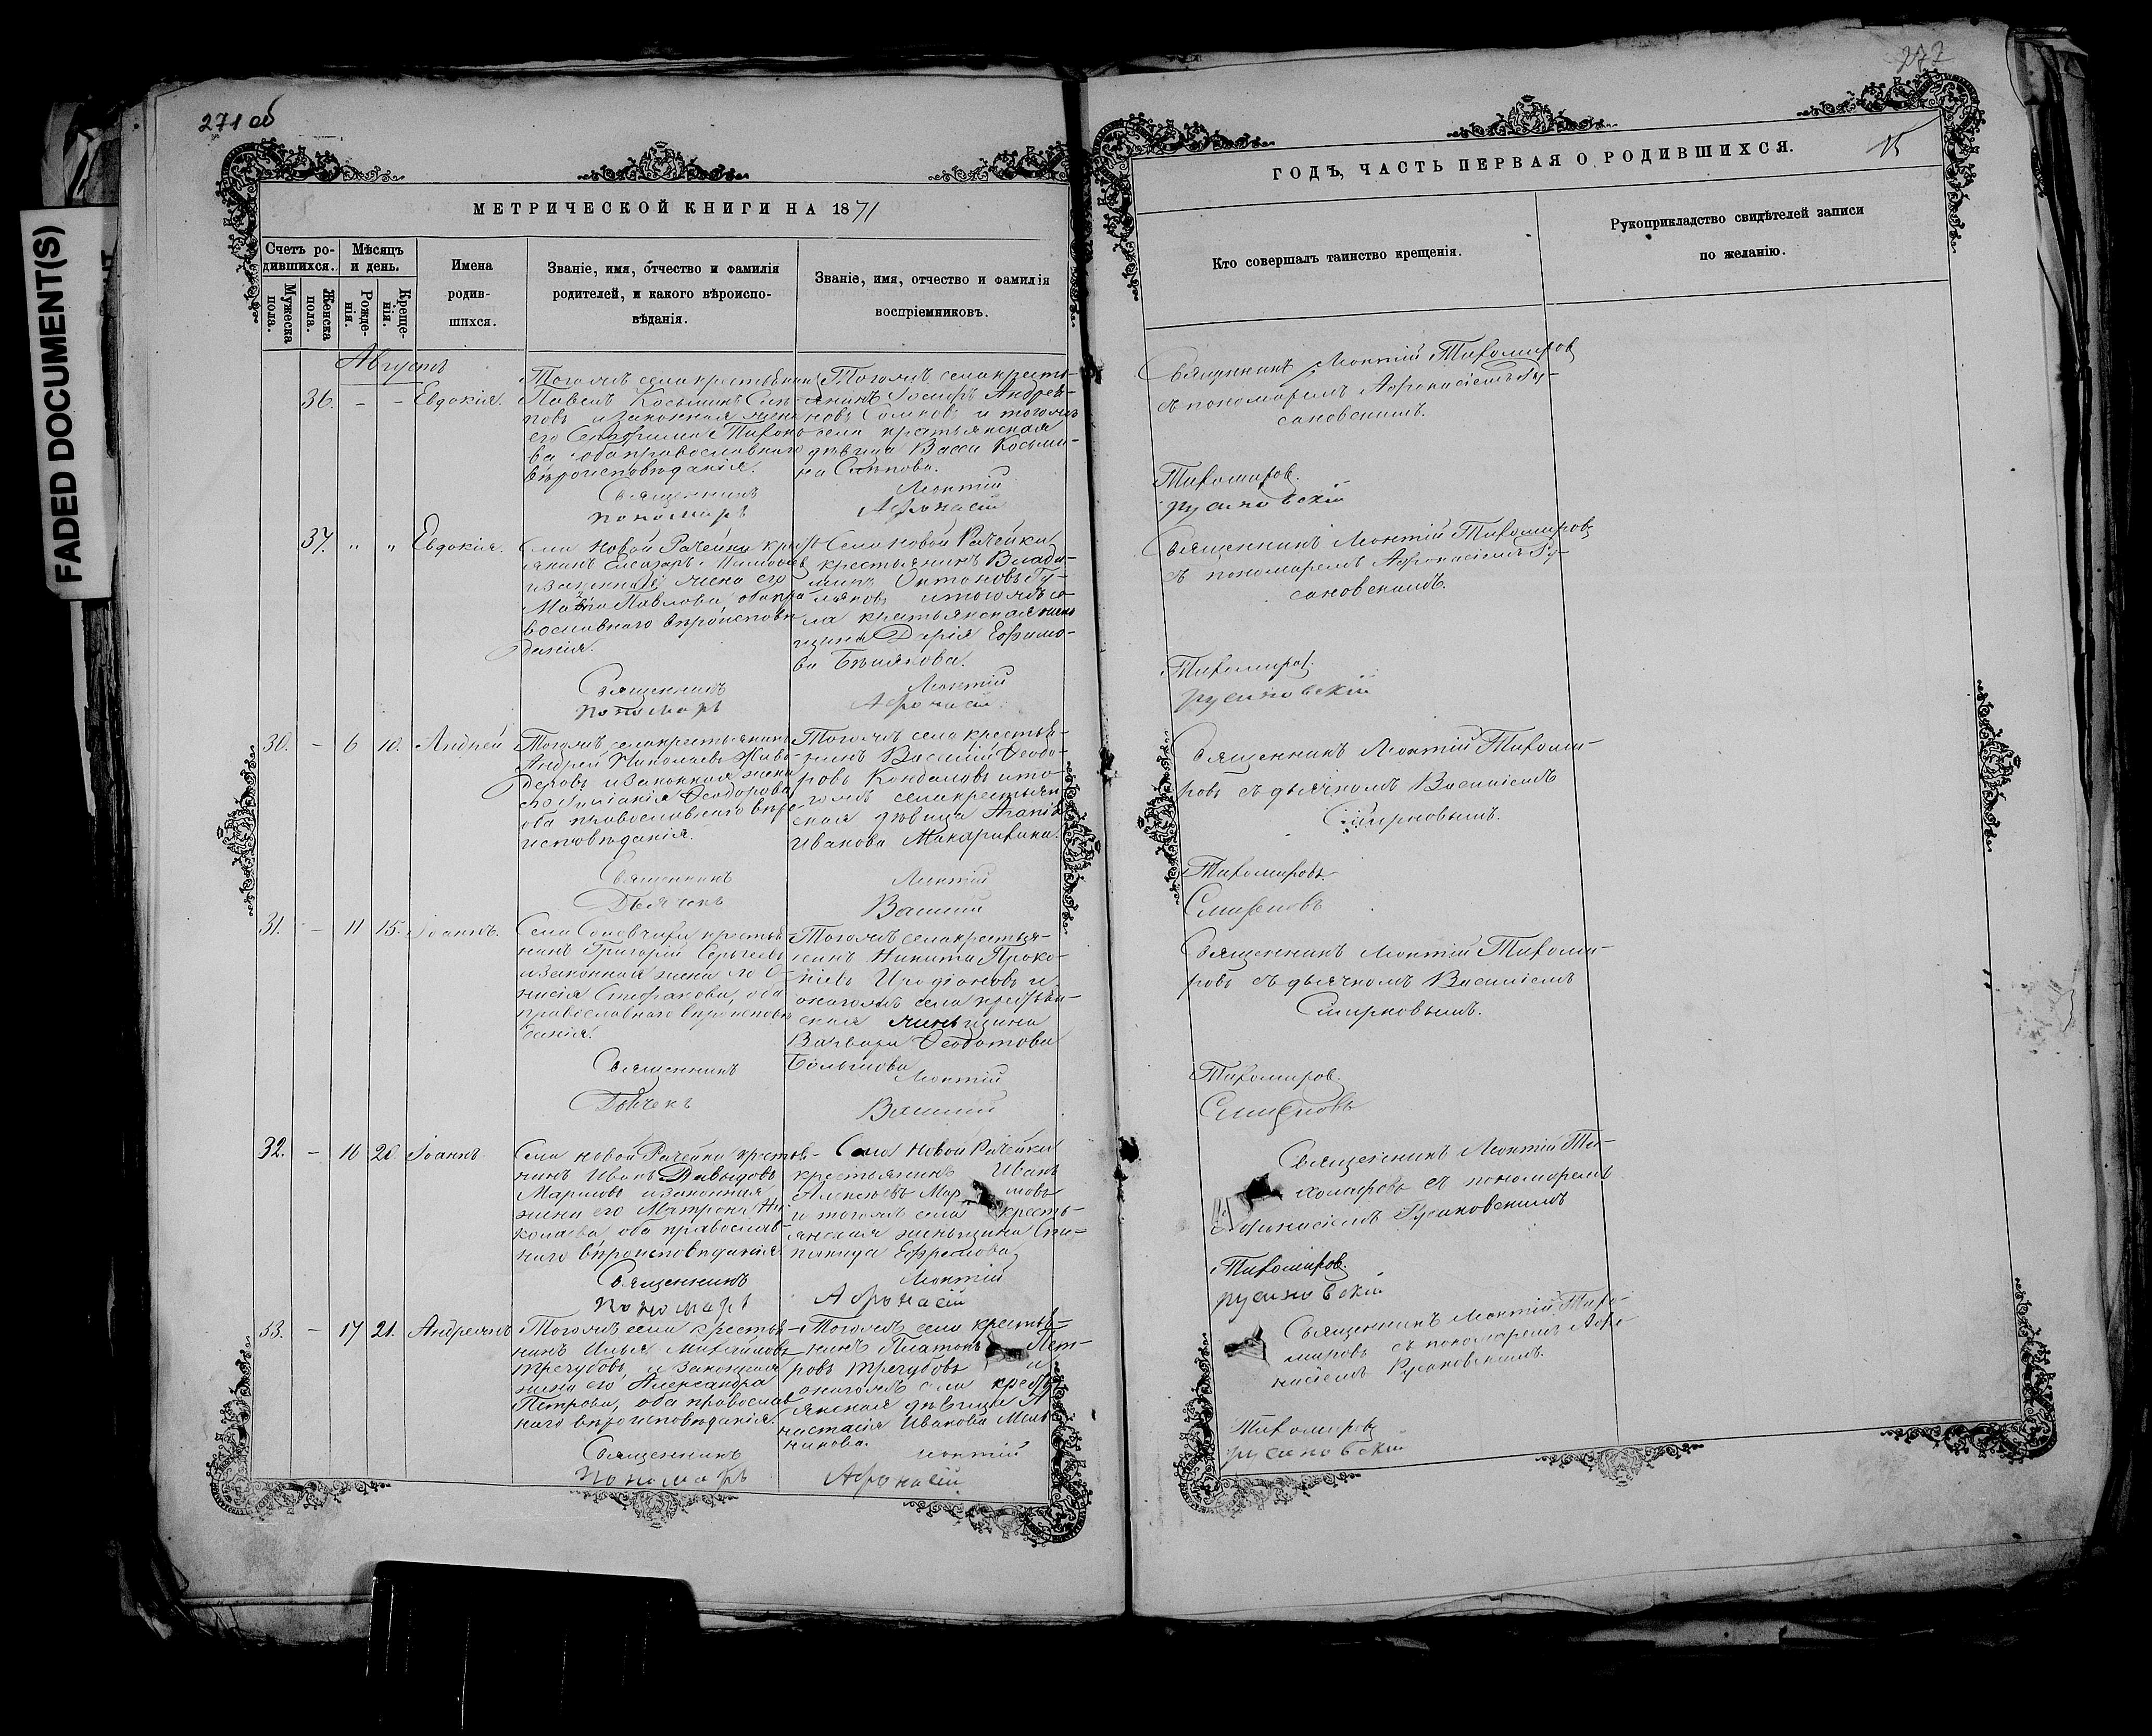 271 об
FADED DOCUMENT(S)
МЕТРИЧЕСКОЙ КНИГИ НА 1871
Счетъ ро-
дившихся.
Мѣсяцъ
и день.
Мужеска
пола.
Женска
пола.
Рожде-
нія.
Креще-
нія.
Имена
родив-
шихся.
Званіе, имя, отчество и фамилія
родителей, и какого вѣроиспо-
вѣданія.
Званіе, имя, отчество и фамилія
воспріемниковъ.
Августъ
36. - - Евдокія.
Тогожъ села крестьянинъ
Павелъ Косьминъ
и законная жена
его
ва оба православнаго
вѣроисповѣданія.
Тогожъ села кресть-
янинъ Андрее-
новъ и тогожъ
села крестьянская
дѣвица Васса Косьми-
на
Священникъ Леонтій
Пономарь Афонасій
37. " " Евдокія.
Села Новой Рачейки крест-
янинъ Елеазаръ
и законная жена его
Павлова, оба пра-
вославнаго вѣроисповѣ-
данія.
Села Новой Рачейки
крестьянинъ Влади-
миръ Антоновъ Гу-
ляковъ и тогожъ се-
ла крестьянская жен-
щина Дарія Ефимо-
ва
Священникъ Леонтій
Пономарь Афонасій
30. - 6 10. Андрей
Тогожъ села крестьянинъ
Андрей Николаевъ Живо-
деровъ и законная жена
его Феодорова
оба православнаго вѣро-
исповѣданія.
Тогожъ села крестья-
нинъ Василій Феодо-
ровъ и то-
гожъ села крестьян-
ская дѣвица
Иванова
Священникъ Леонтій
Дьячекъ Василій
31. - 11 15. Іоаннъ.
Села крестья-
нинъ Григорій Сергѣевъ
и законная жена его О-
нисія Стефанова, оба
православнаго вѣроисповѣ-
данія.
Тогожъ села крестья-
нинъ Никита Проко-
піевъ Иродіоновъ и
онагожъ села крестьян-
ская женщина
Варвара Феодотова
Большова
Священникъ Леонтій
Дьячекъ Василій
32. - 16 20 Іоаннъ
Села Новой Рачейки крестья-
нинъ Иванъ Давыдовъ
и законная
жена его Матрона Ни-
колаева, оба православ-
наго вѣроисповѣданія
Села Новой Рачейки
крестьянинъ Иванъ
Алексѣевъ
и тогожъ села кресть-
янская женщина Сте-
панида Ефремова
Священникъ Леонтій
Пономарь Афонасій
33. - 17 21. Андреянъ
Тогожъ села крестья-
нинъ Илья Михайловъ
Трегубовъ, и законная
жена его Александра
Петрова, оба православ-
наго вѣроисповѣданія.
Тогожъ села крестья-
нинъ Платонъ Пет-
ровъ Трегубовъ и
онагожъ села крестьь-
янская дѣвица А-
настасія Иванова Мель-
никова.
Священникъ Леонтій
Пономарь Афонасій
272
15
ГОДЪ, ЧАСТЬ ПЕРВАЯ О РОДИВШИХСЯ.
Кто совершалъ таинство крещенія.
Рукоприкладство свидѣтелей записи
по желанію.
Священникъ Леонтій Тихомировъ
съ пономаремъ Афонасіемъ Ру-
сановскимъ.
Тихомировъ.
Русановскій
Священникъ Леонтій Тихомировъ
съ пономаремъ Афонасіемъ Ру-
сановскимъ.
Тихомировъ.
Русановскій
Священникъ Леонтій Тихоми-
ровъ съ дьячкомъ Василіемъ
Смирновымъ.
Тихомировъ.
Смирновъ
Священникъ Леонтій Тихоми-
ровъ съ дьячкомъ Василіемъ
Смирновымъ.
Тихомировъ.
Смирновъ
Священникъ Леонтій Ти-
хомировъ съ пономаремъ
Афонасіемъ Русановскимъ
Тихомировъ.
Русановскій
Священникъ Леонтій Тихо-
мировъ съ пономаремъ Афо-
насіемъ Русановскимъ.
Тихомировъ
Русановскій